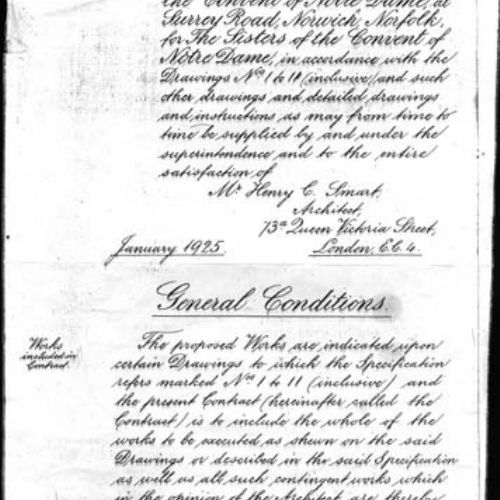 the Convent of Notre Dame, at
Surrey Road, Norwich, Norfolk,
for The Sisters of the Convent of
Notre Dame, in accordance with the
Drawings Nos 1 to 11 (inclusive) and such
other drawings and detailed drawings
and instructions as may from time to
time be supplied by and under the
superintendence and to the entire
satisfaction of
Mr Henry C. Smart,
Architect,
73a Queen Victoria Street,
January 1925. London, E.C. 4.
General Conditions.
Works
included in
Contract.
The proposed Works are indicated upon
certain Drawings to which the Specification
refers marked Nos 1 to 11 (inclusive) and
the present Contract (hereinafter called the
Contract) is to include the whole of the
works to be executed as shewn on the said
Drawings or described in the said Specification
as well as all such contingent works which
in the opinion of the Architect are thereby